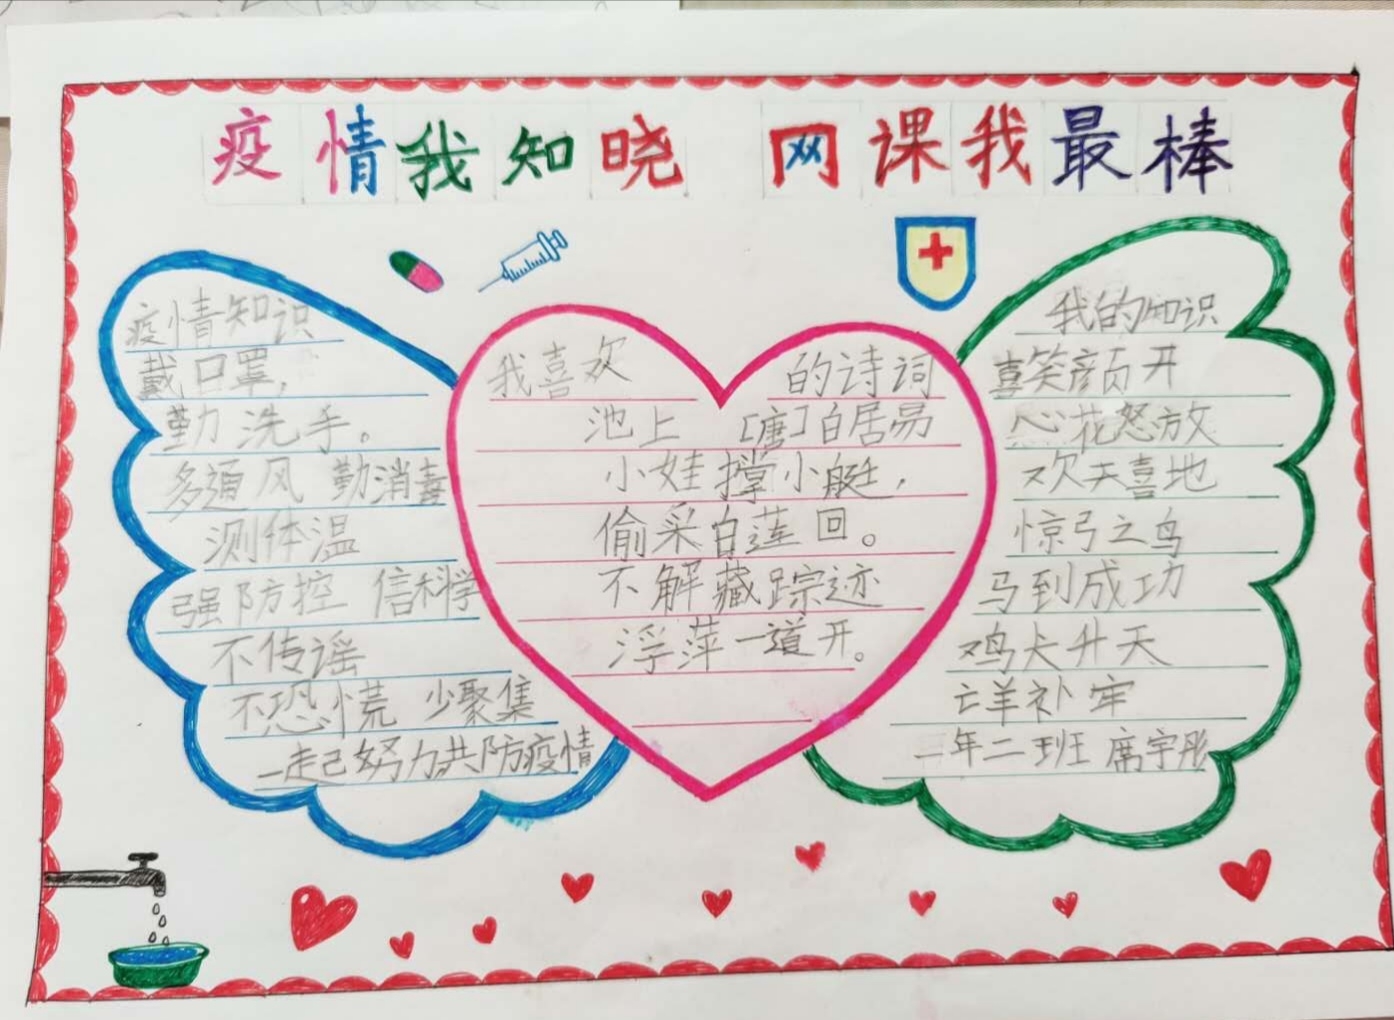 疫情我知晓 网课我最棒
疫情知识
戴口罩,
勤洗手。
多通风 勤消毒
测体温
强防控 信科学
不传谣
不恐慌 少聚集
一起努力共防疫情
我喜欢 的诗词
池上 [唐]白居易
小娃撑小艇,
偷采白莲回。
不解藏踪迹
浮萍一道开。
我的知识
喜笑颜开
心花怒放
欢天喜地
惊弓之鸟
马到成功
鸡犬升天
亡羊补牢
二年二班 席宇彤